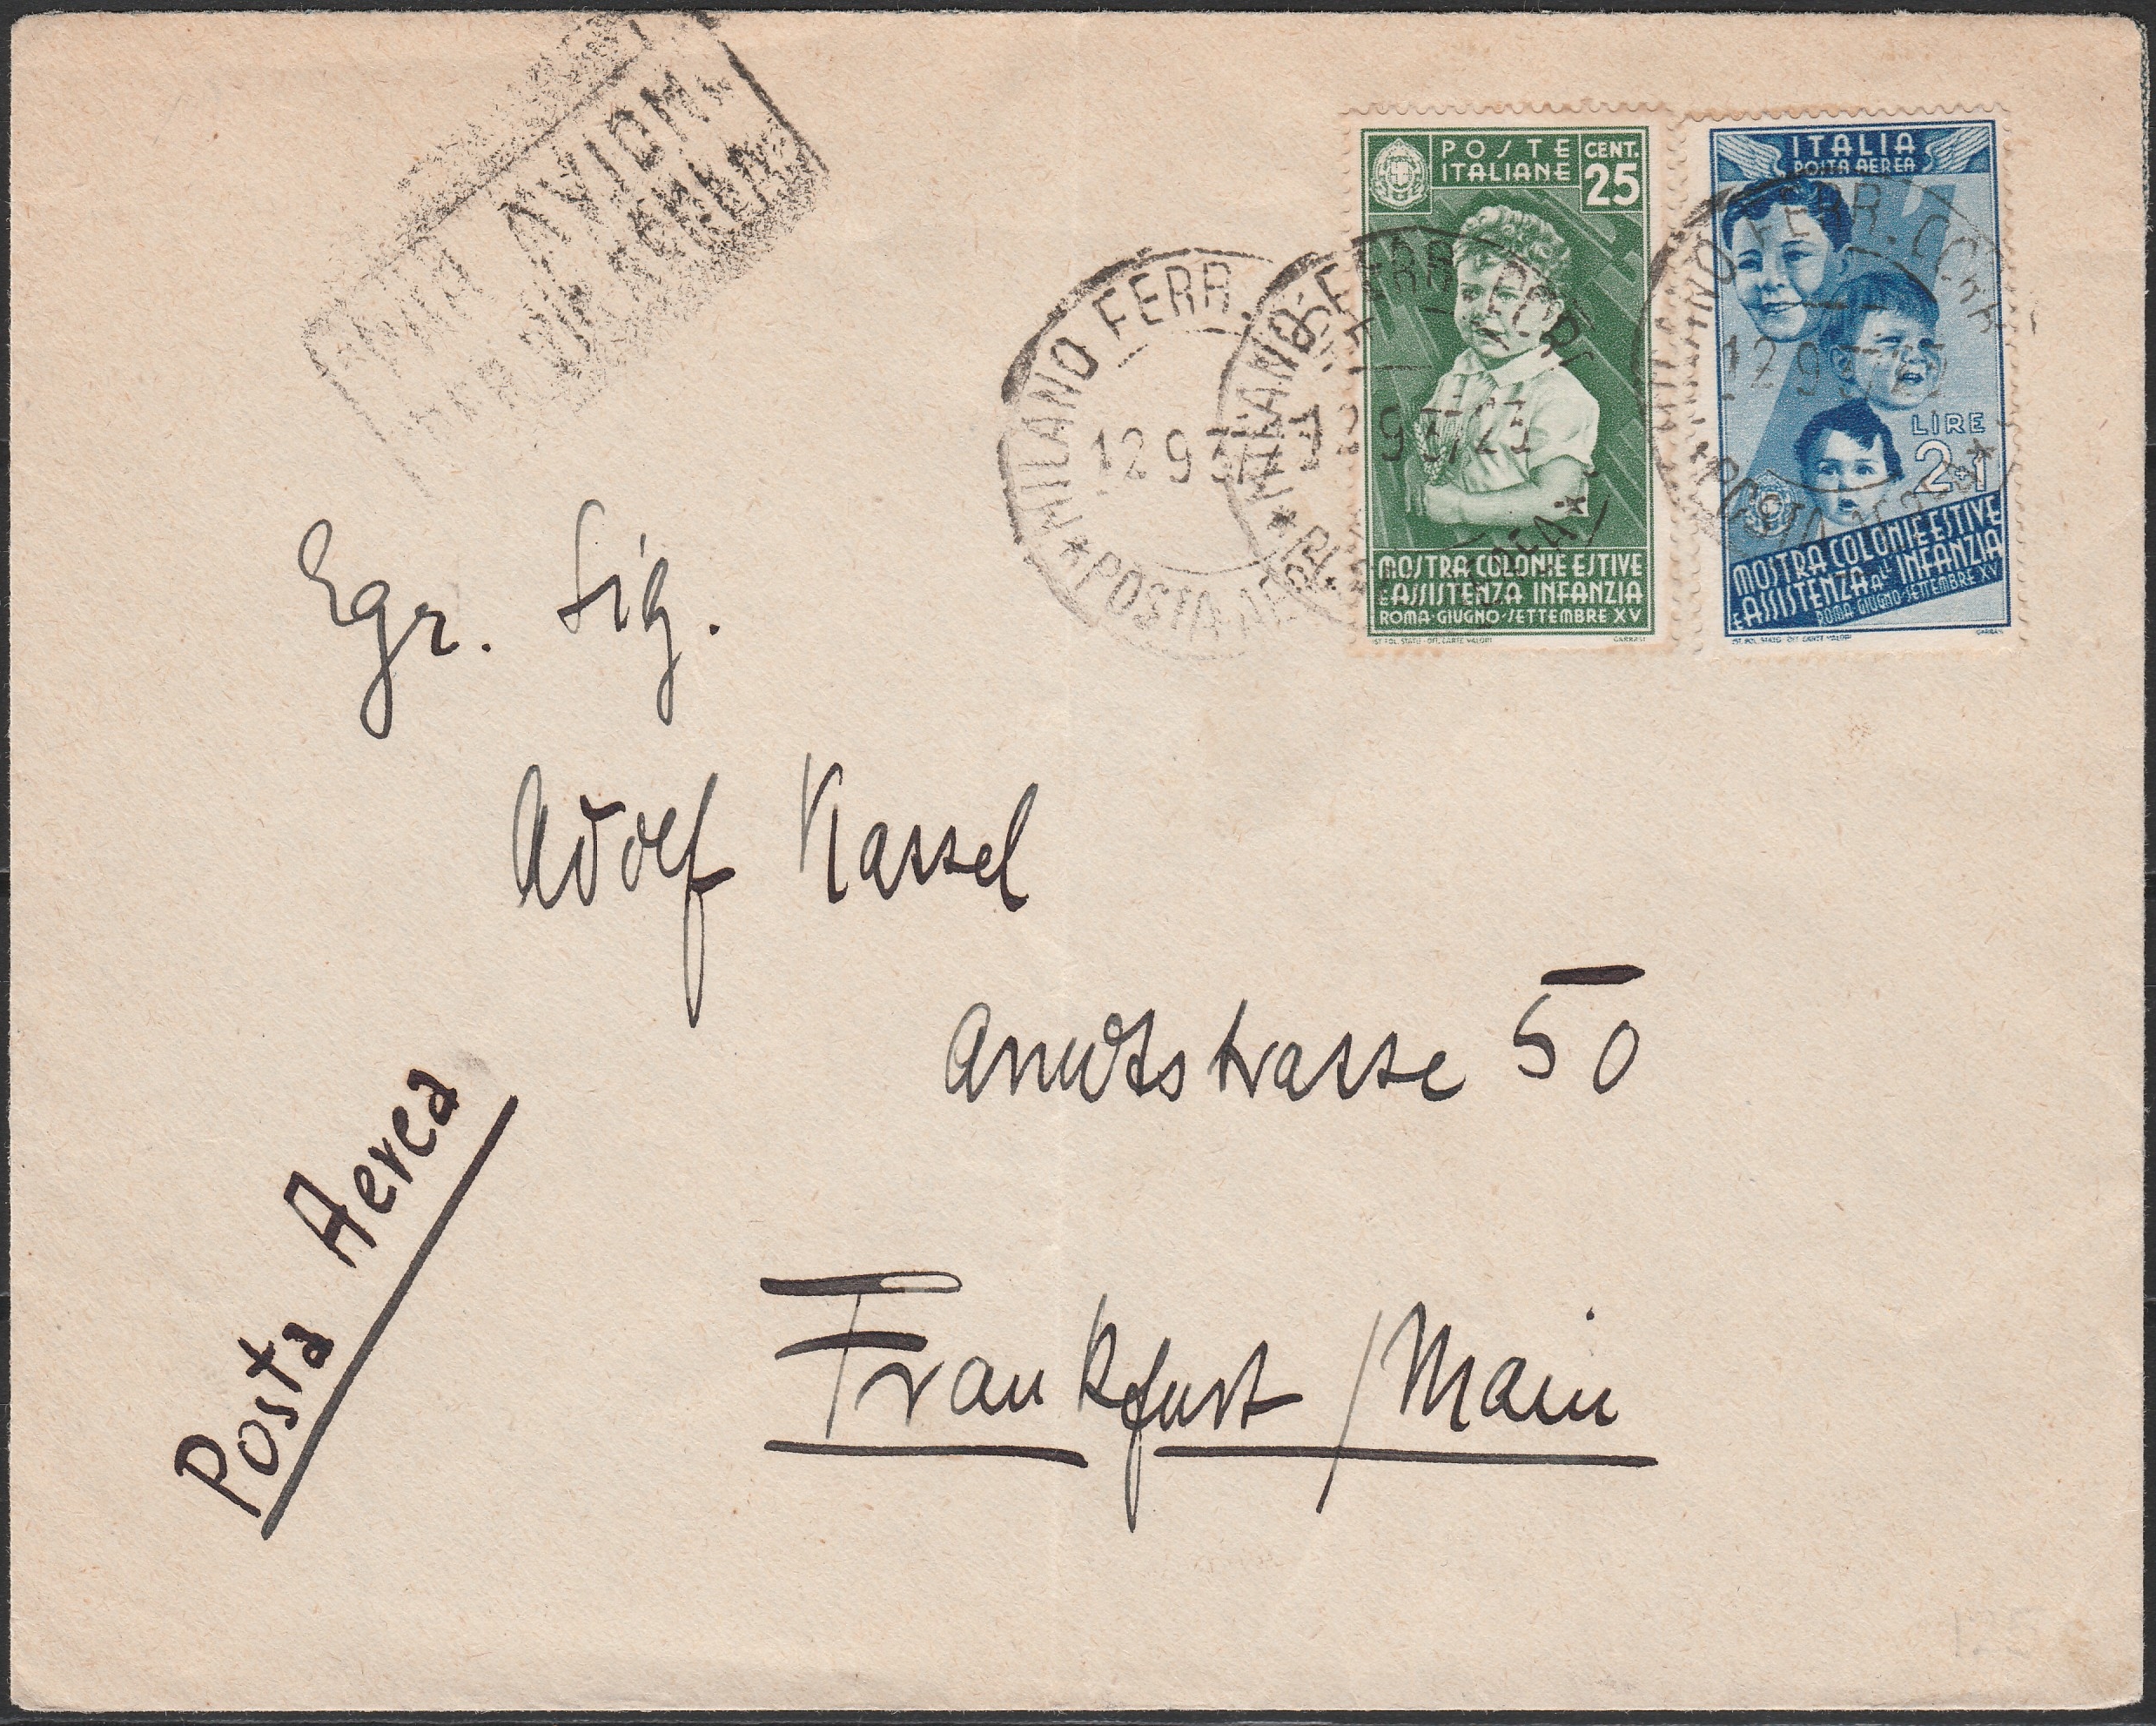 PAR AVION
PER VIA AEREA
POSTE
ITALIANE
CENT.
25
MOSTRA COLONIE ESTIVE
E ASSISTENZA INFANZIA
ROMA·GIUGNO·SETTEMBRE XV
IST. POL. STATO - OFF. CARTE VALORI
GARRASI
ITALIA
POSTA AEREA
LIRE
2+1
MOSTRA COLONIE ESTIVE
E ASSISTENZA ALL'INFANZIA
ROMA·GIUGNO·SETTEMBRE XV
IST. POL. STATO - OFF. CARTE VALORI
GARRASI
MILANO FERR.
12 9 37
*POSTA AEREA
MILANO FERR. CORR
12 9 37/23
*POSTA AEREA*
MILANO FERR. CORR
12 9 37
*POSTA AEREA*
Egr. Sig.
Adolf Kassel
Arndtstrasse 50
Frankfurt/Main
Posta Aerea